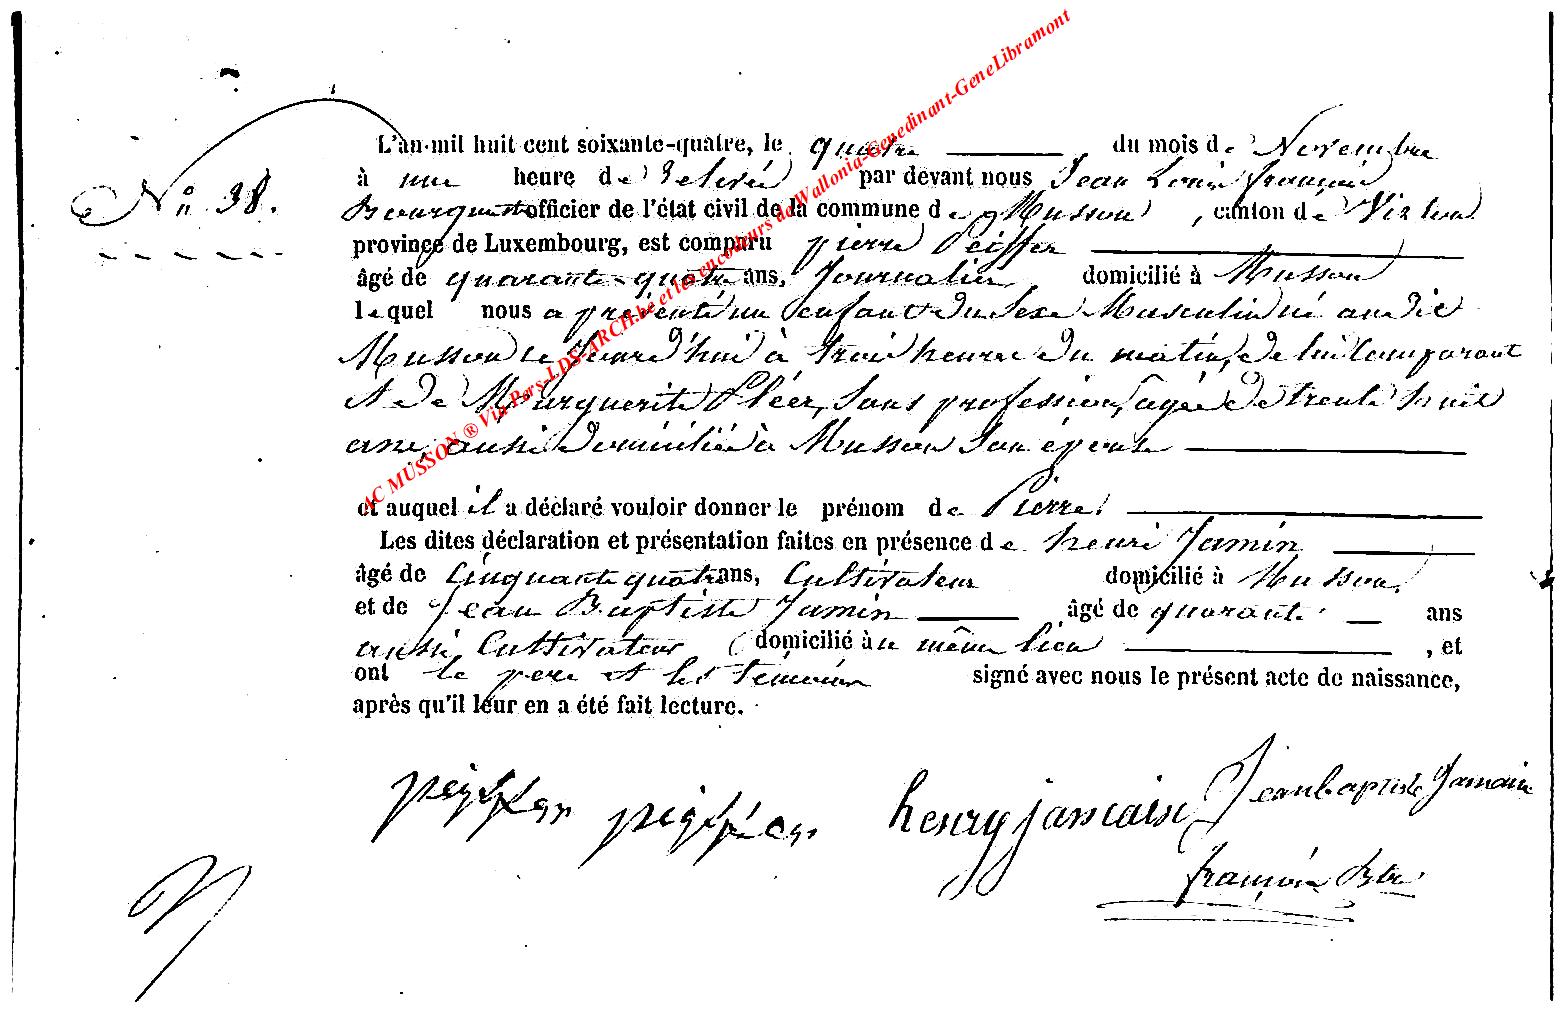 L'an mil huit cent soixante-quatre, le quatre du mois de Novembre
Nº 38. à une heure de relevée par devant nous Jean Louis françois
officier de l'état civil de la commune de Musson, canton de Virton
province de Luxembourg, est comparu pierre Peiffer
âgé de quarante-quatre ans, Journalier domicilié à Musson
lequel nous a présenté un enfant du Sexe Masculin né audit
Musson ce jourd'hui à trois heures du matin, de lui Comparant
et de Marguerite Pléer, Sans profession, agée de trente huit
ans, aussi domiciliée à Musson Son épouse
et auquel il a déclaré vouloir donner le prénom de Pierre
Les dites déclaration et présentation faites en présence de henri Jamin
âgé de Cinquante quatre ans, Cultivateur domicilié à Musson
et de Jean Baptiste Jamin âgé de quarante ans
aussi Cultivateur domicilié au même lieu, et
ont le pere et les témoins signé avec nous le présent acte de naissance,
après qu'il leur en a été fait lecture.
henry jamain Jean baptiste Jamain
françois
AC MUSSON ® Via Pers-LDS-ARCH.be et les encodeurs de Wallonia-Genedinant-GeneLibramont